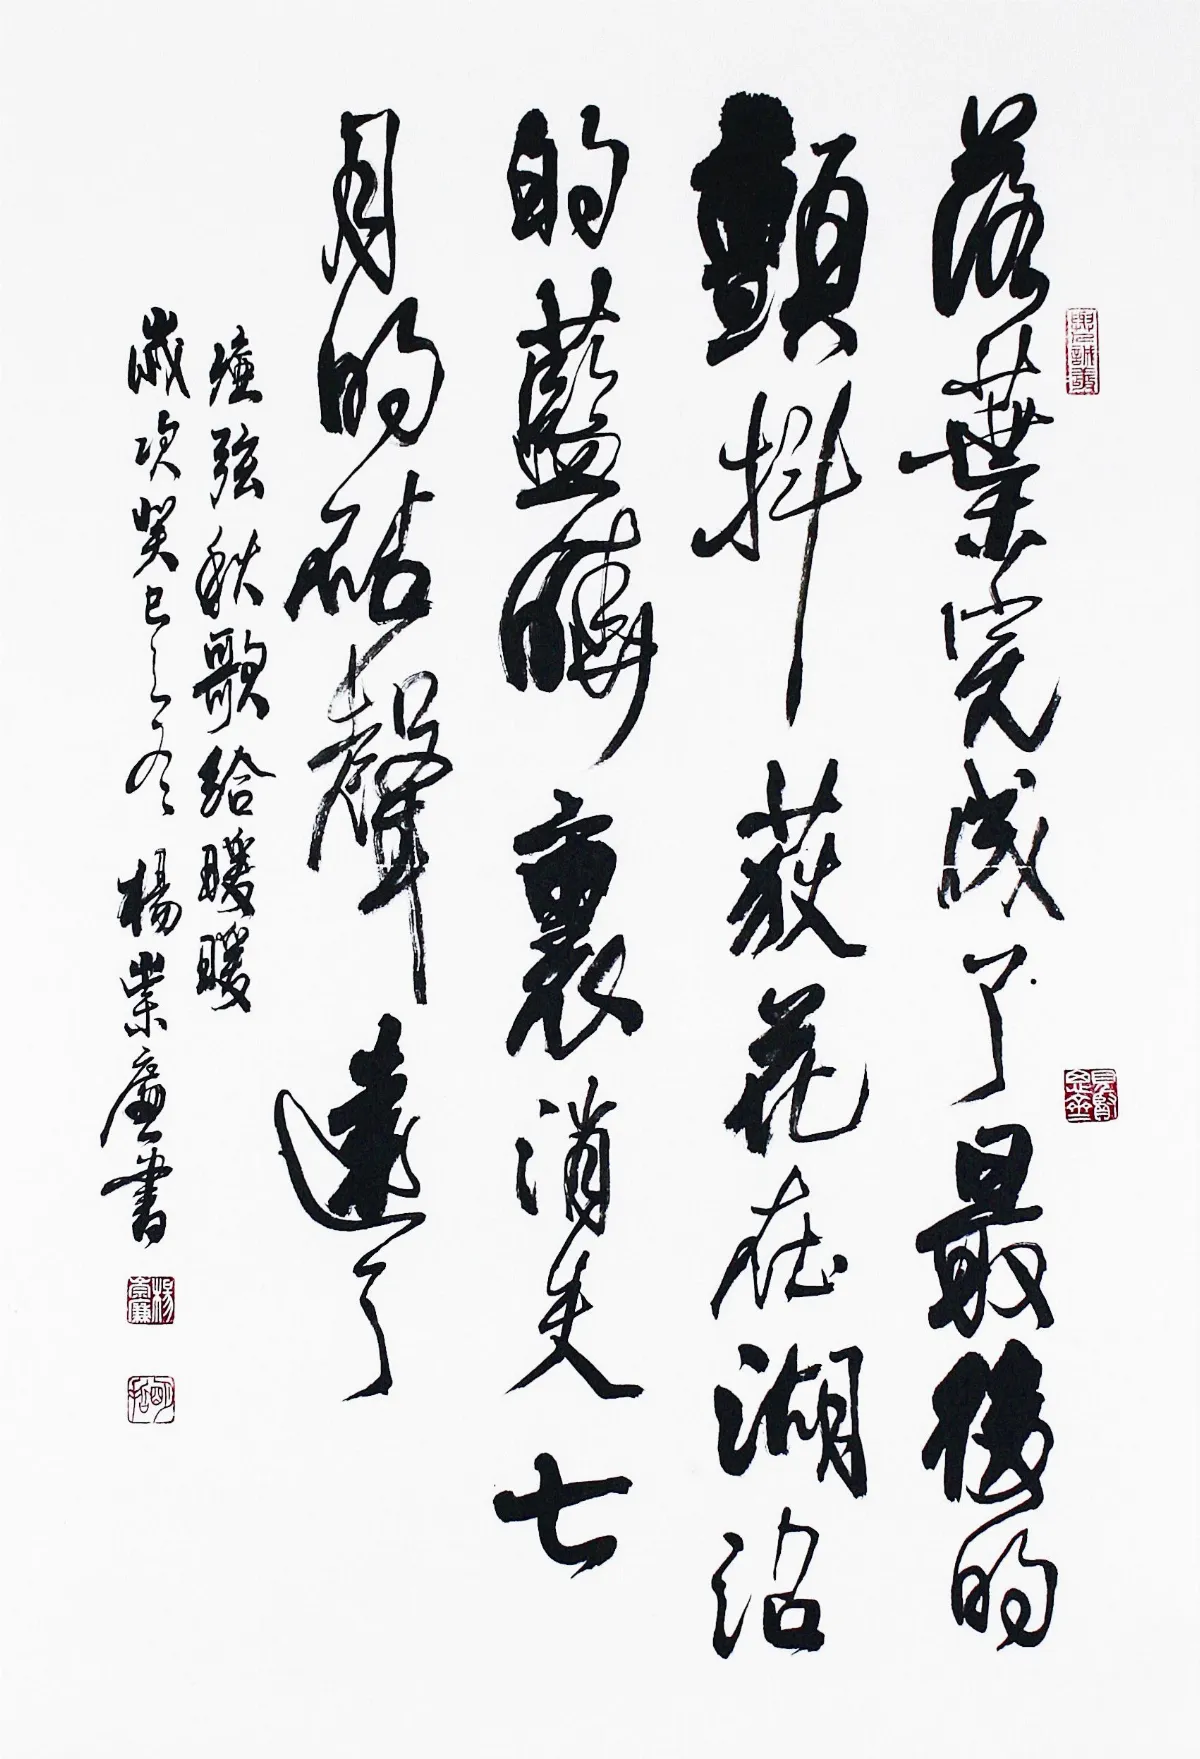 落葉完成了最後的
顫抖荻花在湖沼
的藍睛裏消失七
月的砧聲遠了
瘂弦秋歌給暖暖
歲次癸巳之冬楊崇廉書